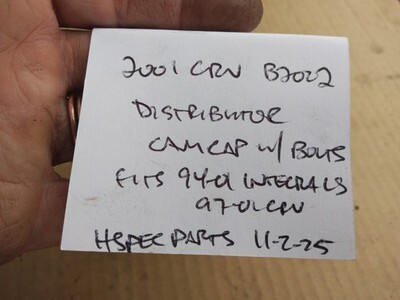 2001 CRV B2022
DISTRIBUTOR
CAM CAP w/ BOLTS
FITS 94-01 INTEGRA LS
97-01 CRV
HSPEC PARTS 11-2-25